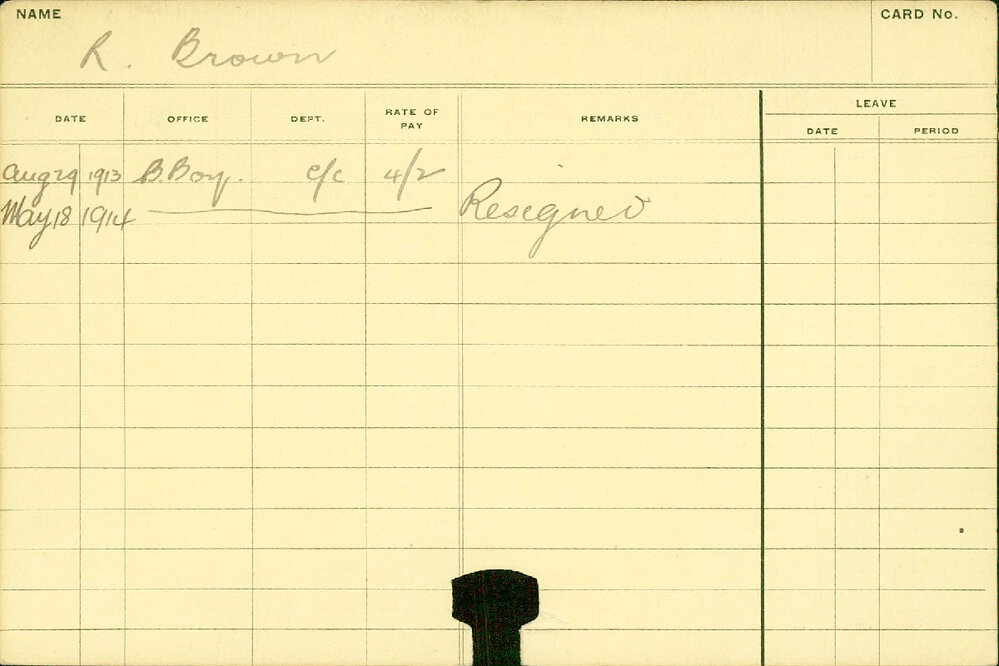 NAME
CARD No.
R. Brown
DATE OFFICE DEPT. RATE OF PAY REMARKS LEAVE
DATE PERIOD
Aug 29 1913 B. Boy. c/c 4/2
May 18 1914 Resigned